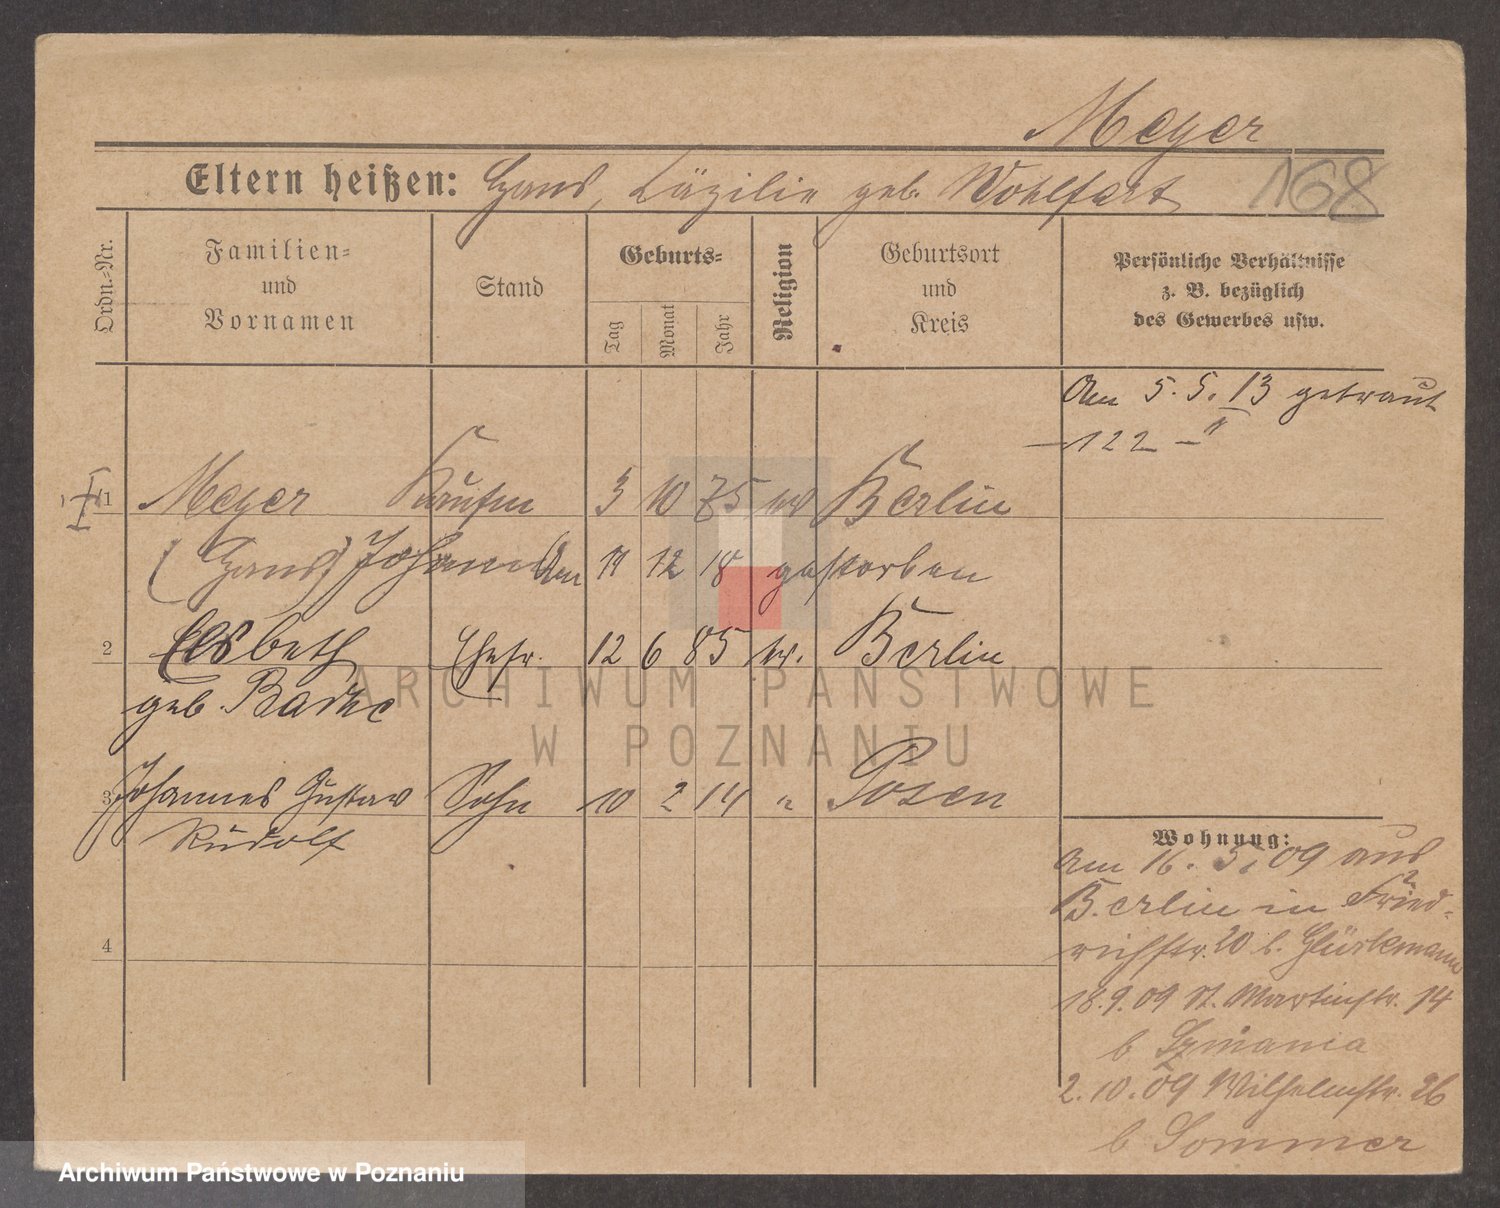 Meyer
Eltern heißen: Hans, Käzilie geb. Wohlfart
168
Ordn.-Nr.
Familien-
und
Vornamen
Stand
Geburts-
Tag
Monat
Jahr
Religion
Geburtsort
und
Kreis
Persönliche Verhältnisse
z. B. bezüglich
des Gewerbes usw.
Am 5. 5. 13 getraut
122
1 Meyer Kaufm 3 10 75 ev Berlin
(Hans) Johannes Am 11 12 18 gestorben
2 Elsbeth Ehefr. 12 6 85 ev. Berlin
geb. Badke
3 Johannes Gustav Sohn 10 2 14 " Posen
Rudolf
4
Wohnung:
Am 16. 3. 09 aus
Berlin in Fried-
richstr. 20 b. Glückmann
18.9.09 St. Martinstr. 14
b Szmania
2.10.09 Wilhelmstr. 26
b Sommer
ARCHIWUM PAŃSTWOWE
W POZNANIU
Archiwum Państwowe w Poznaniu